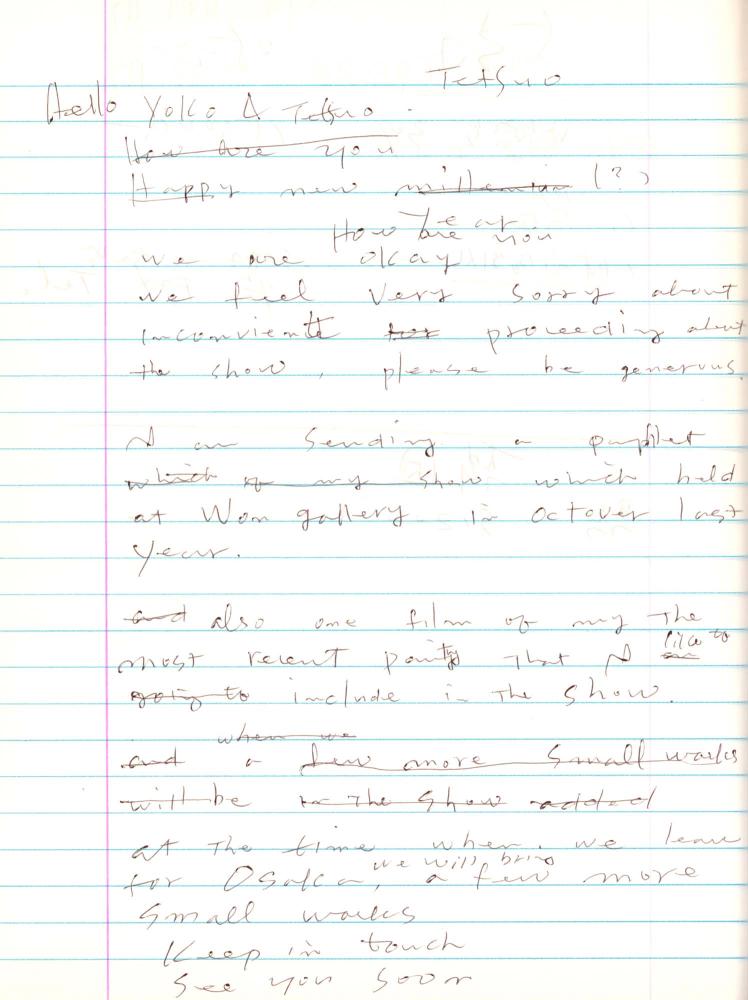 Tetsuo
Hello Yoko & Tetsuo.
How are you
Happy new millenium (?)
Year
How are you
we are okay
we feel very sorry about
inconvient for proceeding about
the show, please be generous.
I am sending a pamphlet
which of my show which held
at Won gallery in Octover last
year.
and also one film of my the
like to
most recent painting that I am
going to include in the show.
when we
and a few more small works
will be in the show added
at the time when we leave
we will bring
for Osaka, a few more
small works
Keep in touch
See you soon